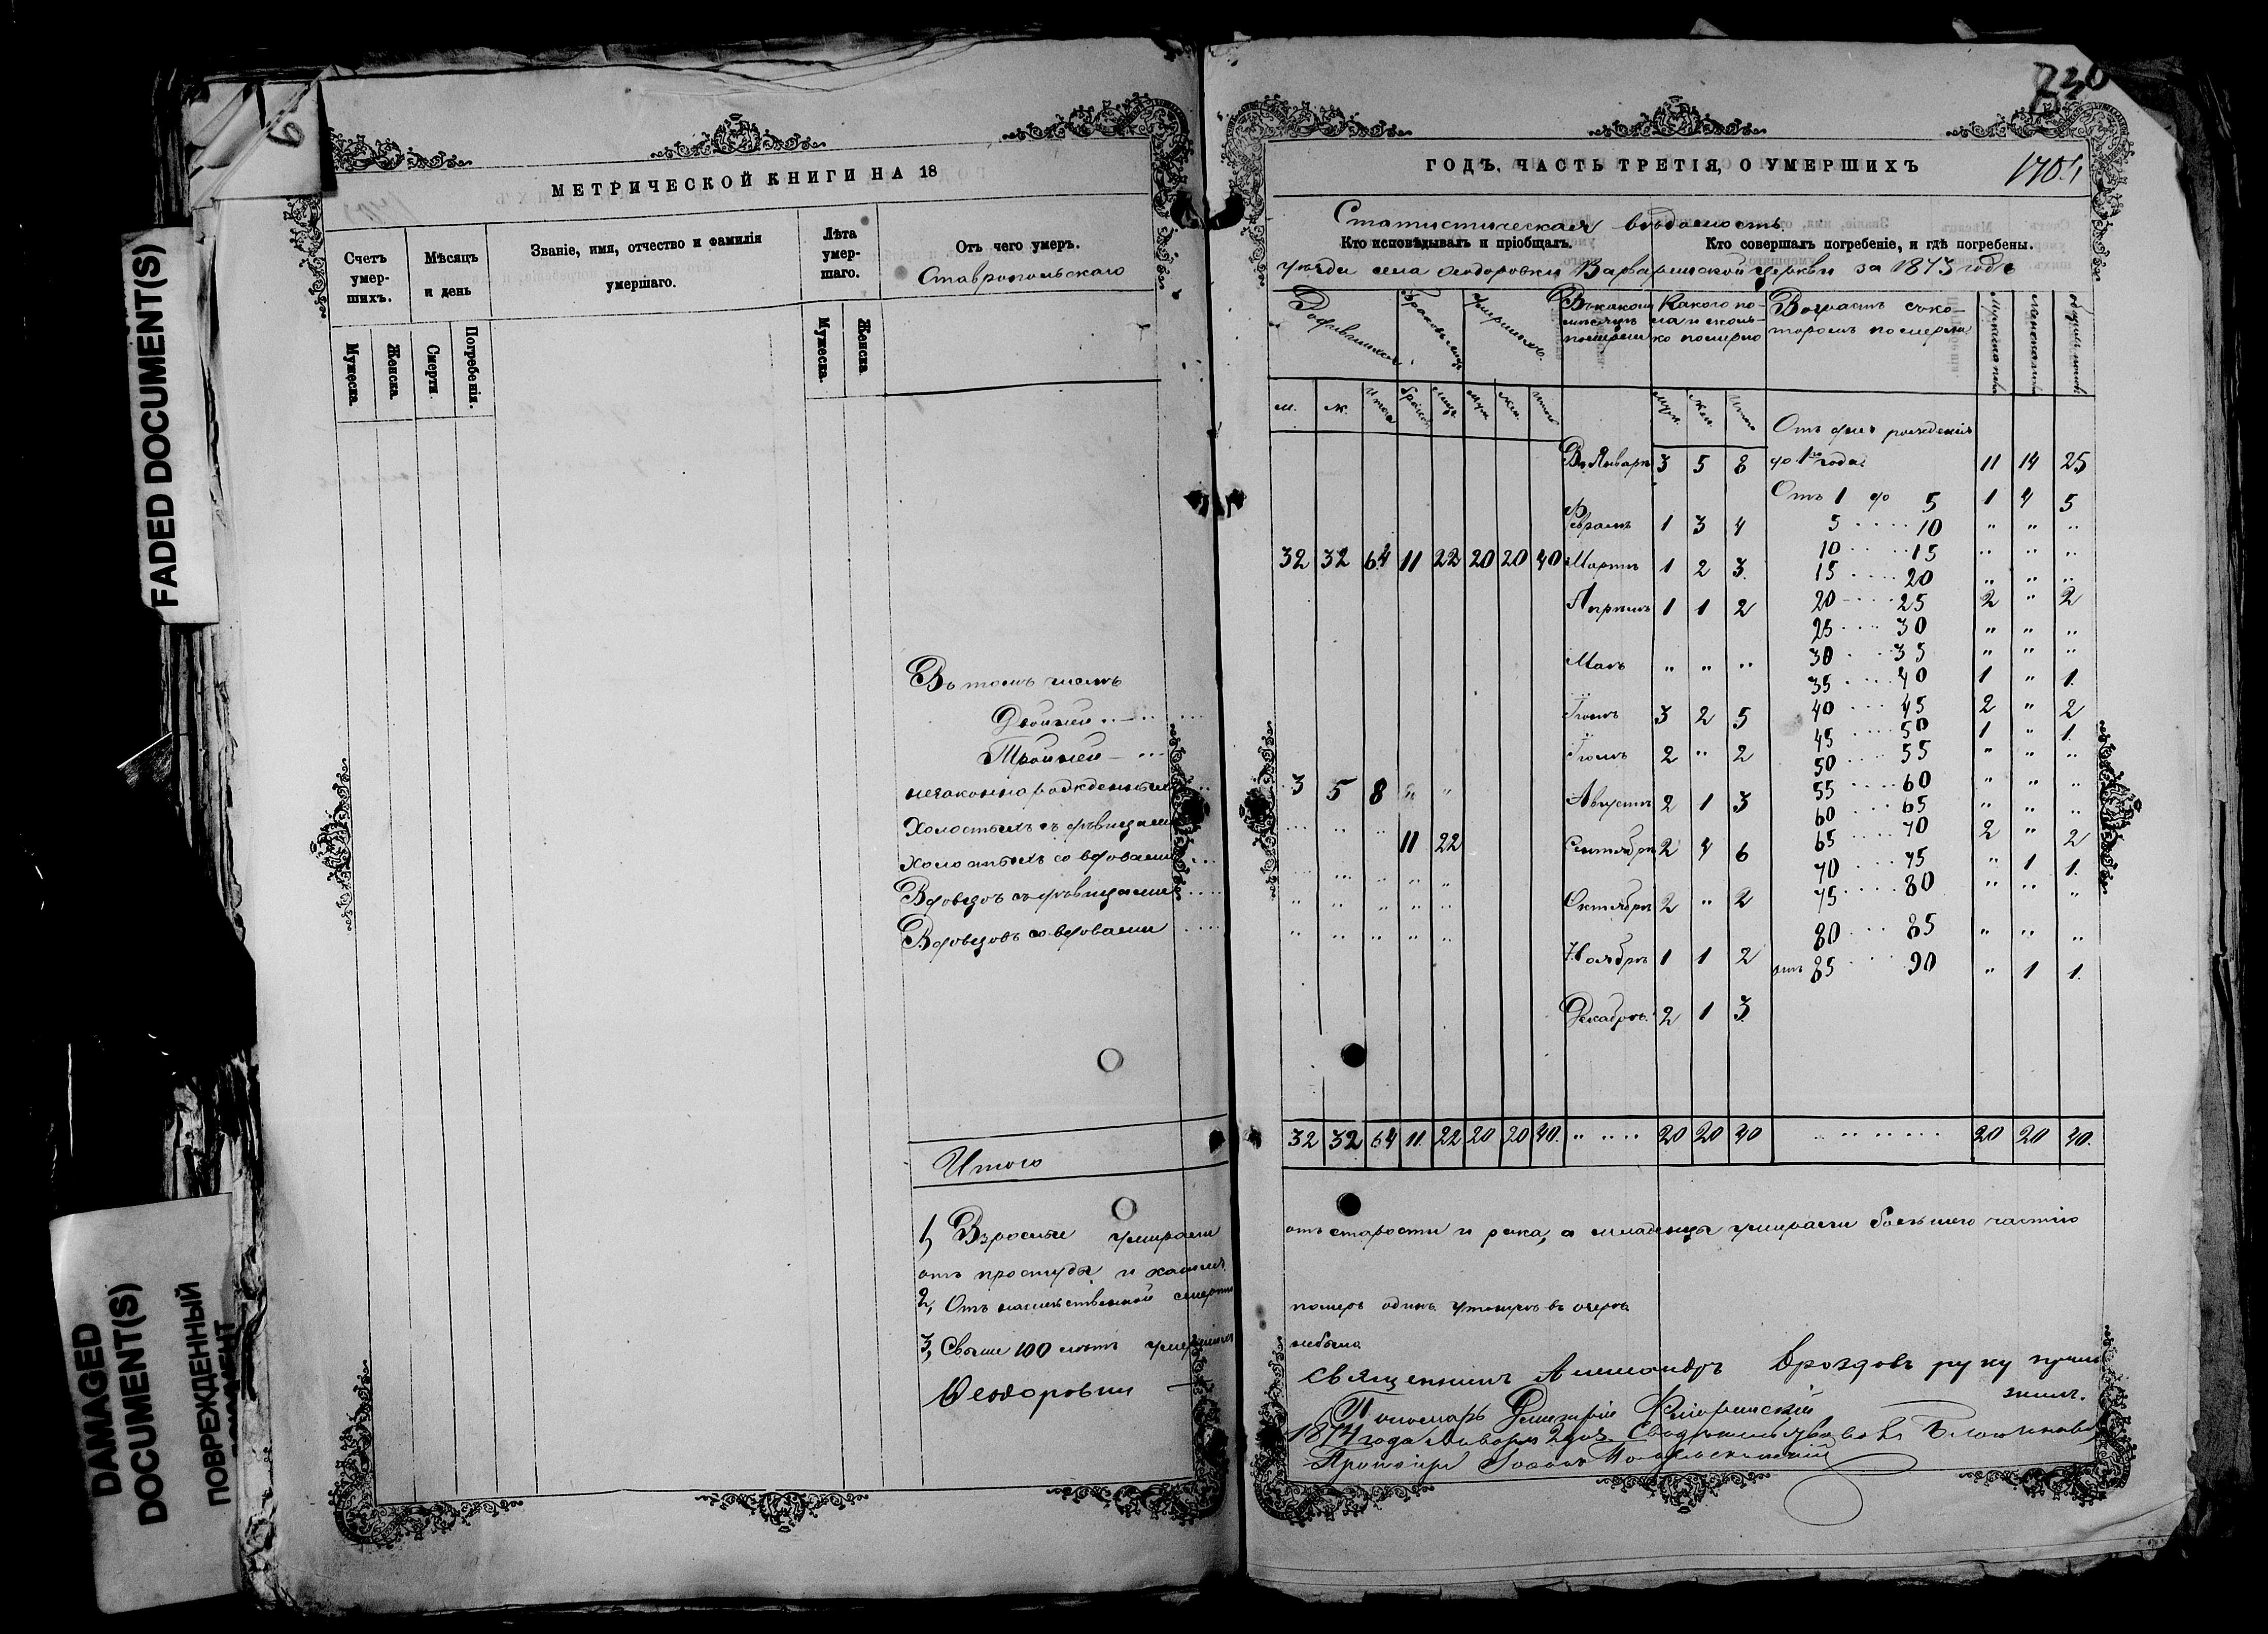 FADED DOCUMENT(S)
DAMAGED
DOCUMENT(S)
ПОВРЕЖДЕННЫЙ
МЕТРИЧЕСКОЙ КНИГИ НА 18
Счетъ умер-шихъ.
Мѣсяцъ и день
Званіе, имя, отчество и фамилія умершаго.
Лѣта умер-шаго.
Отъ чего умеръ.
Ставропольскаго
Мужеска. Женска. Смерти. Погребенія. Мужеска. Женска.
Въ томъ числѣ
Двойней
Тройней
незаконнорожденныхъ
Холостыхъ съ дѣвицами
Холостыхъ со вдовами
Вдовцовъ съ дѣвицами
Вдовцовъ со вдовами
Итого
1, Взрослые умирали
отъ простуды и кашля
2, Отъ насильственной смерти
3, Свыше 100 лѣтъ умершихъ
Ѳеодоровки
730
ГОДЪ, ЧАСТЬ ТРЕТІЯ, О УМЕРШИХЪ
Статистическая вѣдомость
Кто исповѣдывалъ и пріобщалъ.
Кто совершалъ погребеніе, и гдѣ погребены.
уѣзда села Ѳеодоровки Варваринской церкви за 1873 годъ
Родившихся
Браковъ
Умершихъ
Въ какомъ мѣсяцѣ померли
Какого по-ла и сколь-ко померло
Возрастъ въ ко-торомъ померли
м. ж. Итого
муж. жен. Итого
Отъ дня рожденія
Въ Январѣ 3 5 8 до 1го года 11 14 25
Отъ 1 до 5 1 4 5
Февралѣ 1 3 4
5 10 " " "
10 15 " " "
32 32 64 11 22 20 20 40 Мартѣ 1 2 3
15 20 " " "
Апрѣлѣ 1 1 2
20 25 2 " 2
25 30 " " "
Маѣ " " "
30 35 " " "
35 40 1 " 1
Іюнѣ 3 2 5
40 45 2 " 2
45 50 1 " 1
Іюлѣ 2 " 2
50 55 " " "
3 5 8 " "
55 60 " " "
Августѣ 2 1 3
60 65 " " "
11 22
65 70 2 " 2
Сентябрѣ 2 4 6
70 75 " 1 1
75 80 " " "
Октябрѣ 2 " 2
80 85 " " "
Ноябрѣ 1 1 2
отъ 85 90 " 1 1
Декабрѣ 2 1 3
32 32 64 11 22 20 20 40 20 20 40 20 20 40
отъ старости и рака, а младенцы умирали большею частію
померъ одинъ утонувъ въ озерѣ
небыло
Священникъ Александръ Дроздовъ руку прило
жилъ.
Пономарь Димитрій
1874 года Января 2 дня Свидѣтельствовалъ Благочинный
Протоіерей Іоаннъ